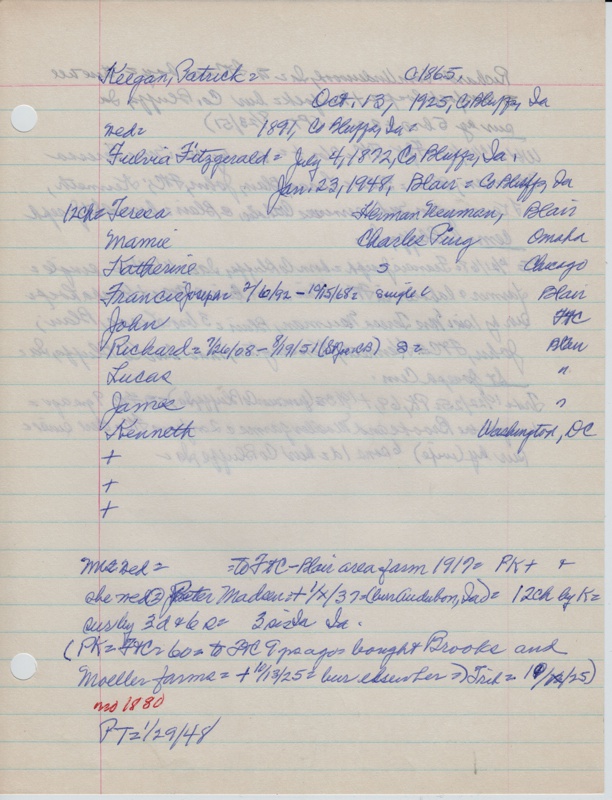 Keegan, Patrick = c1865,
Oct. 13, 1925, Co Bluffs, Ia
med = 1891, Co Bluffs, Ia =
Fulvia Fitzgerald = July 4, 1872, Co Bluffs, Ia.
Jan. 23, 1948, Blair = Co Bluffs, Ia
12Ch = Teresa Herman Neuman, Blair
Mamie Charles Ping Omaha
Katherine s Chicago
Francis Joseph = 2/6/92 - 10/5/68 = single Blair
John FtC
Richard = 7/26/08 - 8/19/51 = Blair
Lucas "
James "
Kenneth Washington, DC
+
+
+
med = = to FtC - Blair area farm 1917 = PK + +
she med ② Peter Madsen = + 1/x/37 = (bur Audubon, Ia) = 12ch by K =
sur by 3d & 6s = 3 si Ia Ia.
(PK = FtC = 60 = to FtC 9 yrs ago = bought Brooks and
Moeller farms = + 10/13/25 = bur elsewher =) Trib = 10/ /25)
no 1880
PT = 1/29/48